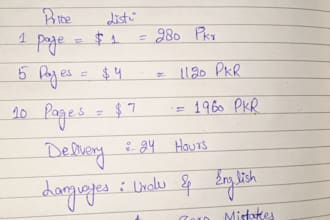 Price list:
1 page = $ 1 = 280 Pkr
5 Pages = $ 4 = 1120 PKR
10 Pages = $ 7 = 1960 PKR
Delivery : 24 Hours
Languages : Urdu & English
Zero Mistakes